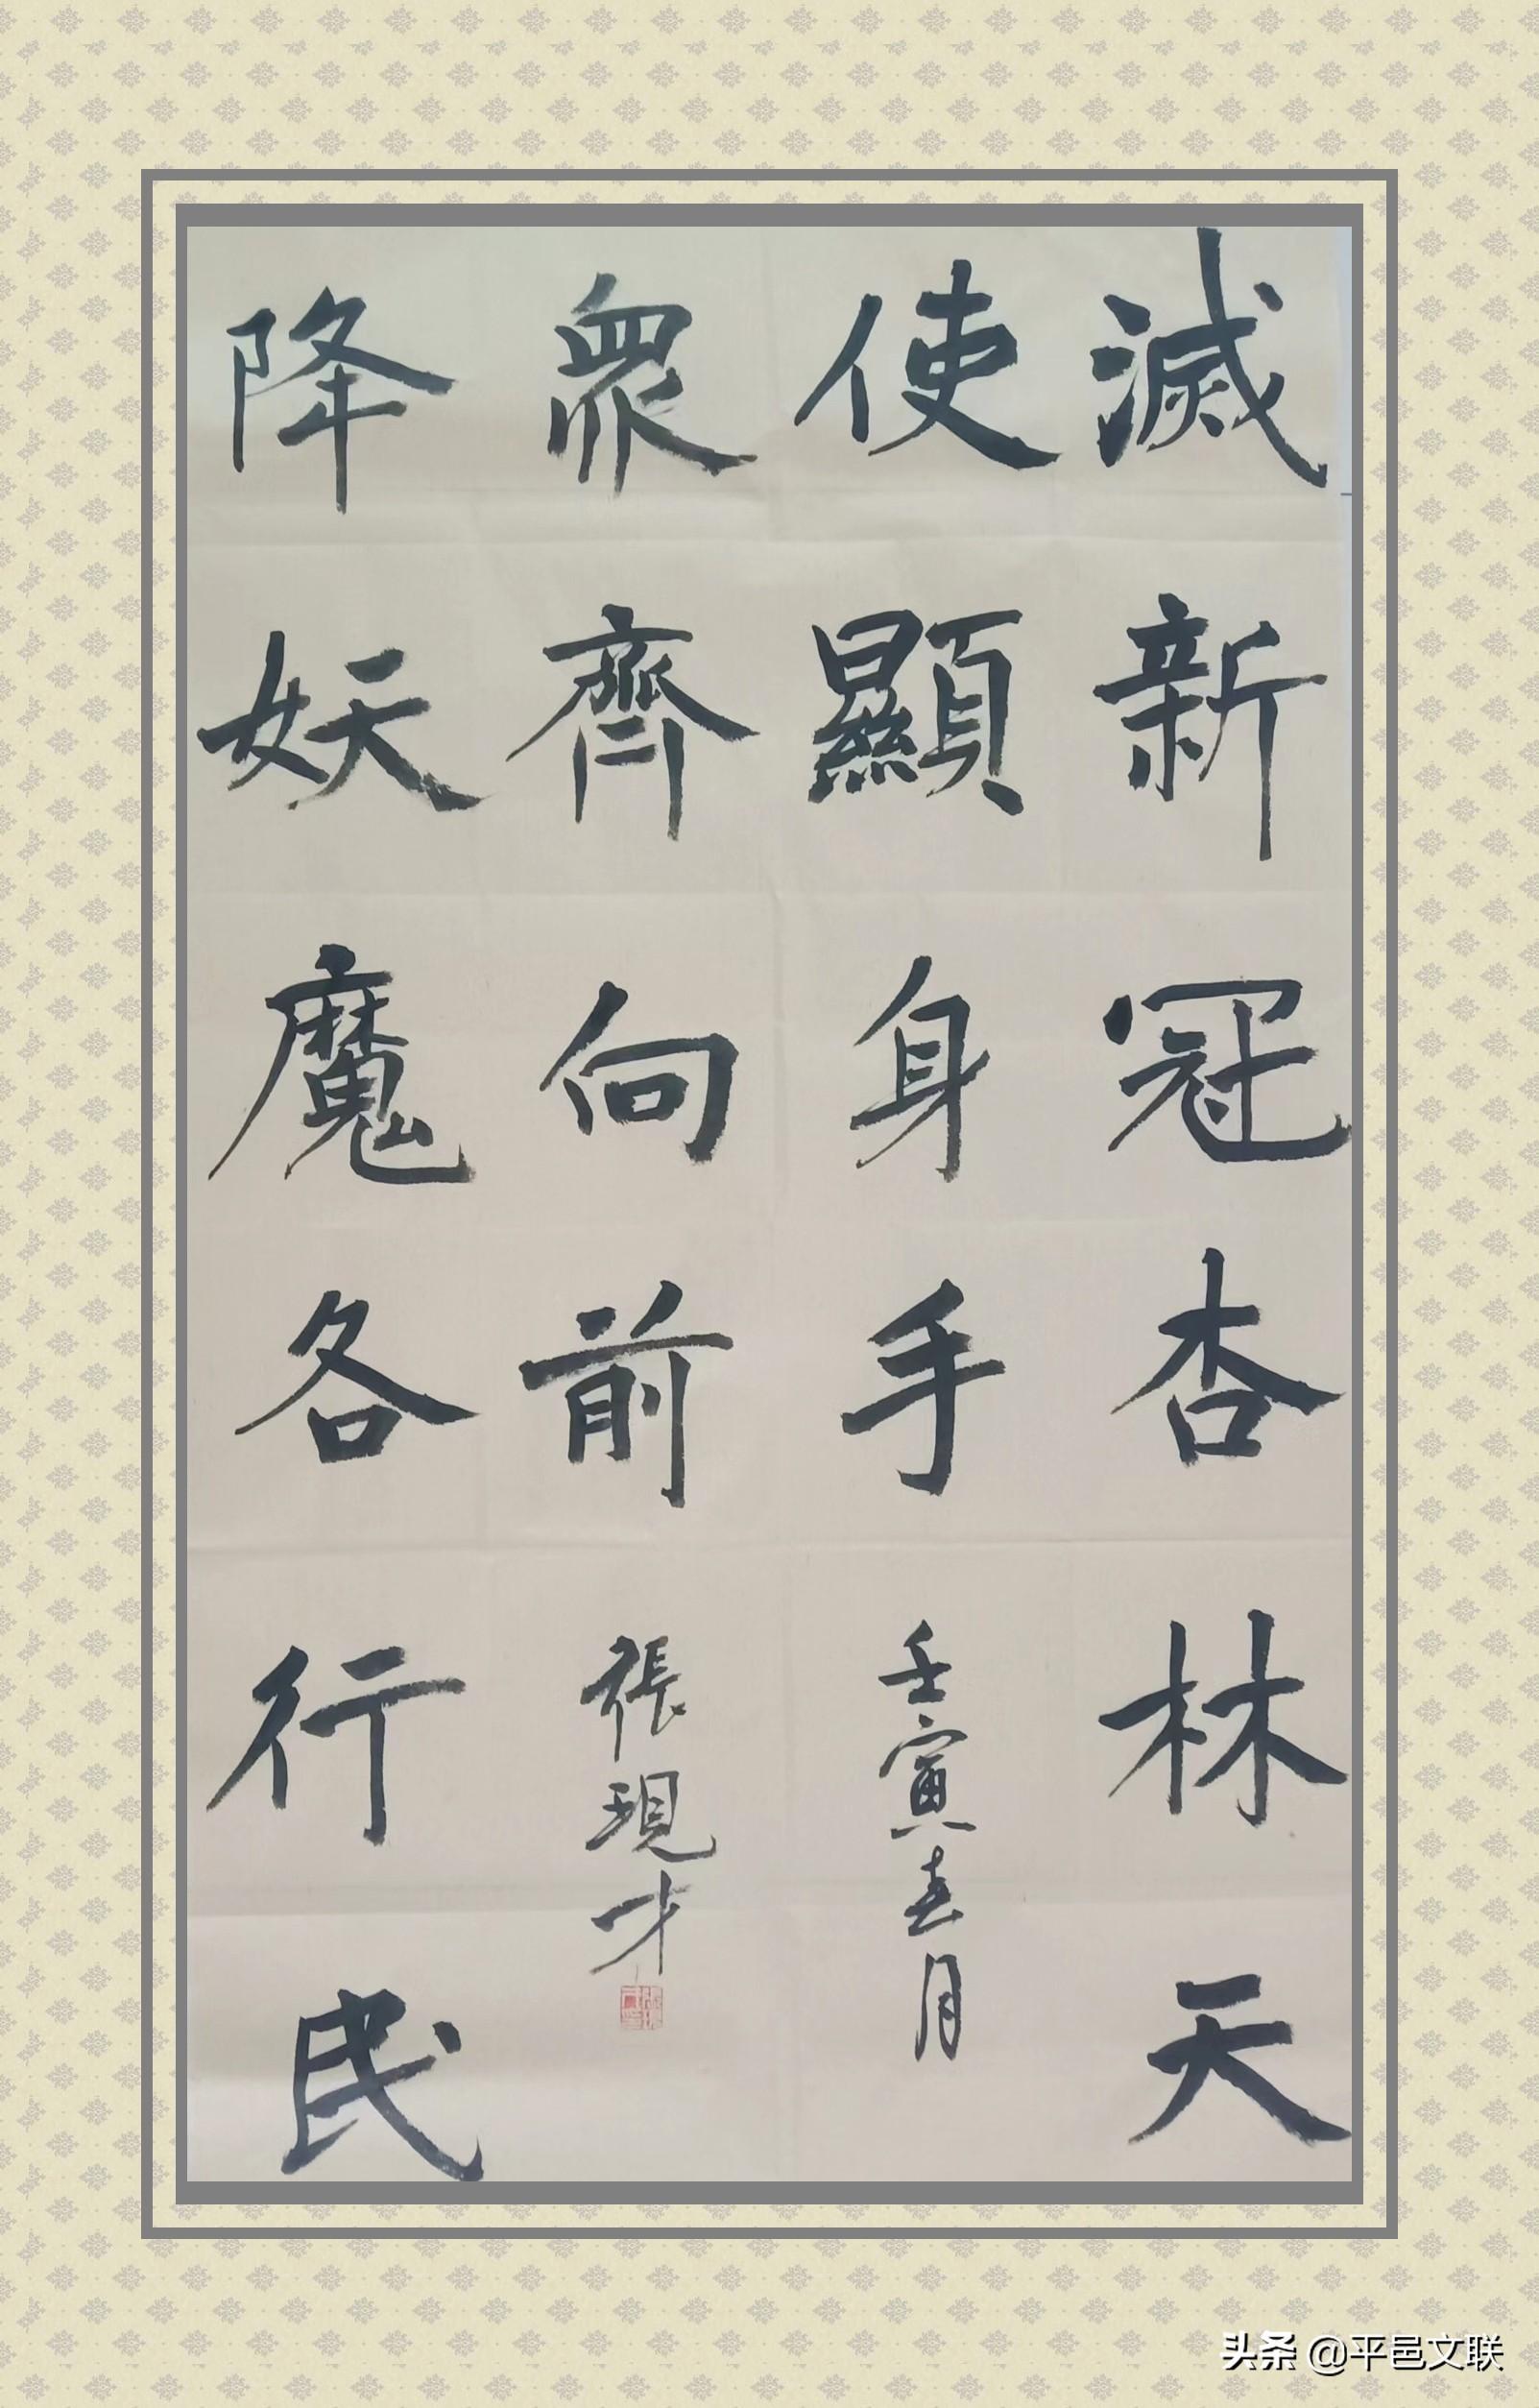 滅新冠杏林天
使顯身手
壬寅春月
衆齊向前
張現才
降妖魔各行民
头条 @平邑文联